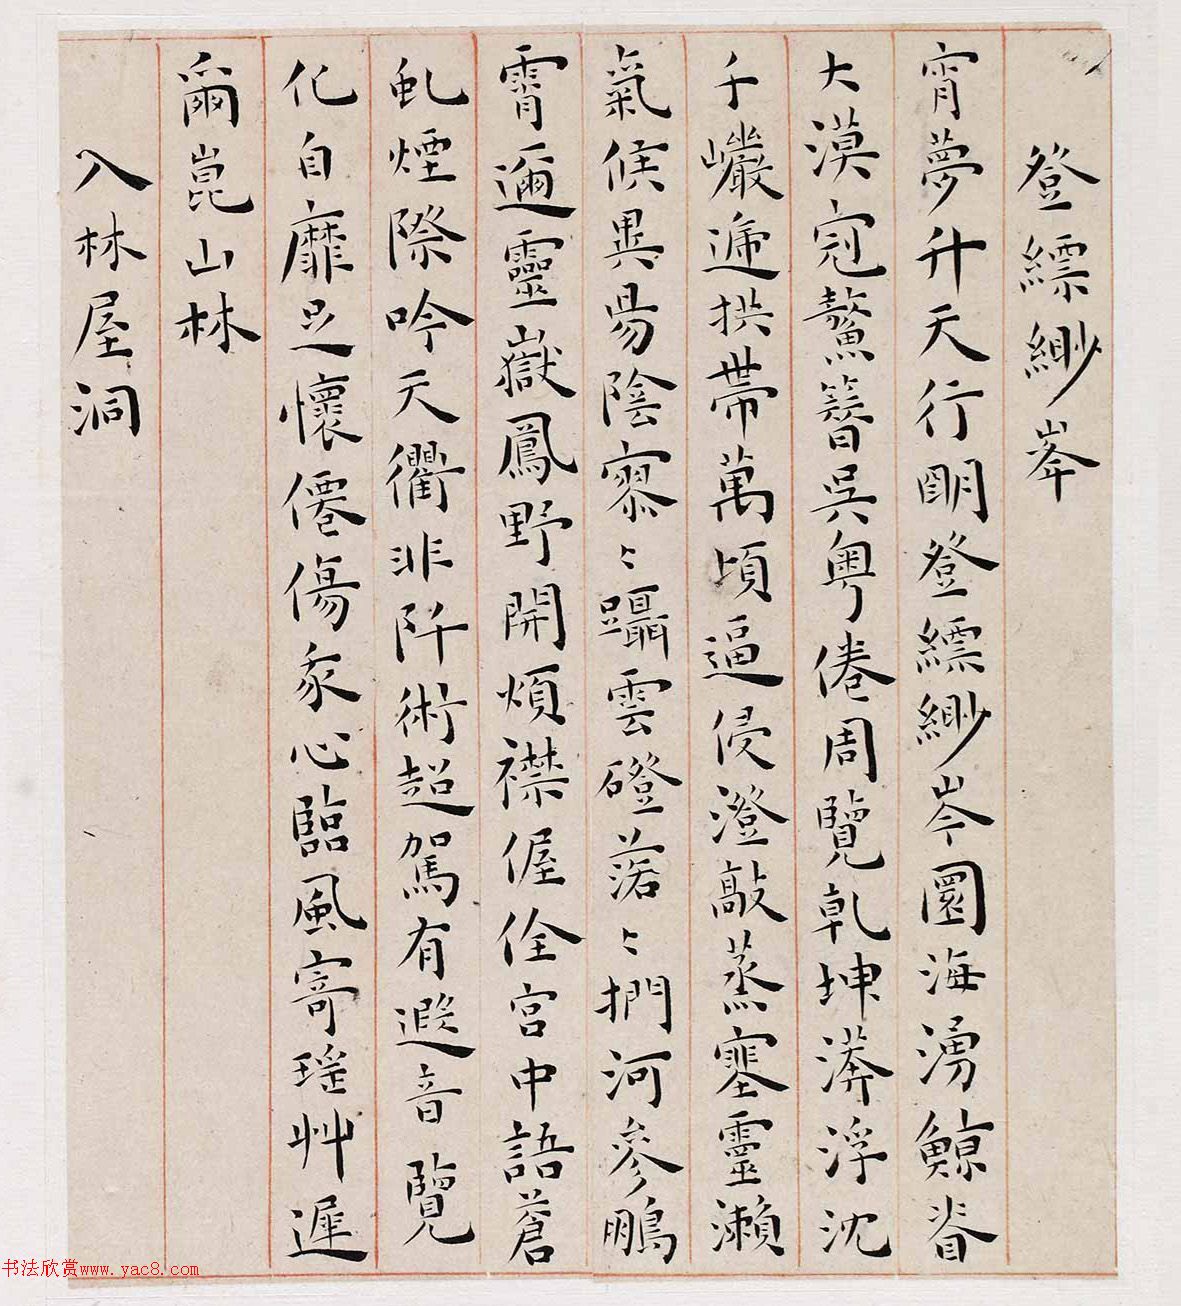 登縹緲峯
宵夢升天行明登縹緲岑圜海湧鯨脊
大漠冠鰲簪吳粵倦周覽乾坤漭浮沈
千巖遞拱帶萬頃逼侵澄歊蒸寒靈濑
氣候異昜陰寥〻躡雲磴落〻捫河參鵬
霄邇靈嶽鳳野開煩襟偓佺宮中語蒼
虬煙際吟天衢非阡術超駕有遐音覽
化自靡足懷僊傷豕心臨風寄瑤艸遲
爾崑山林
入林屋洞
书法欣赏www.yac8.com